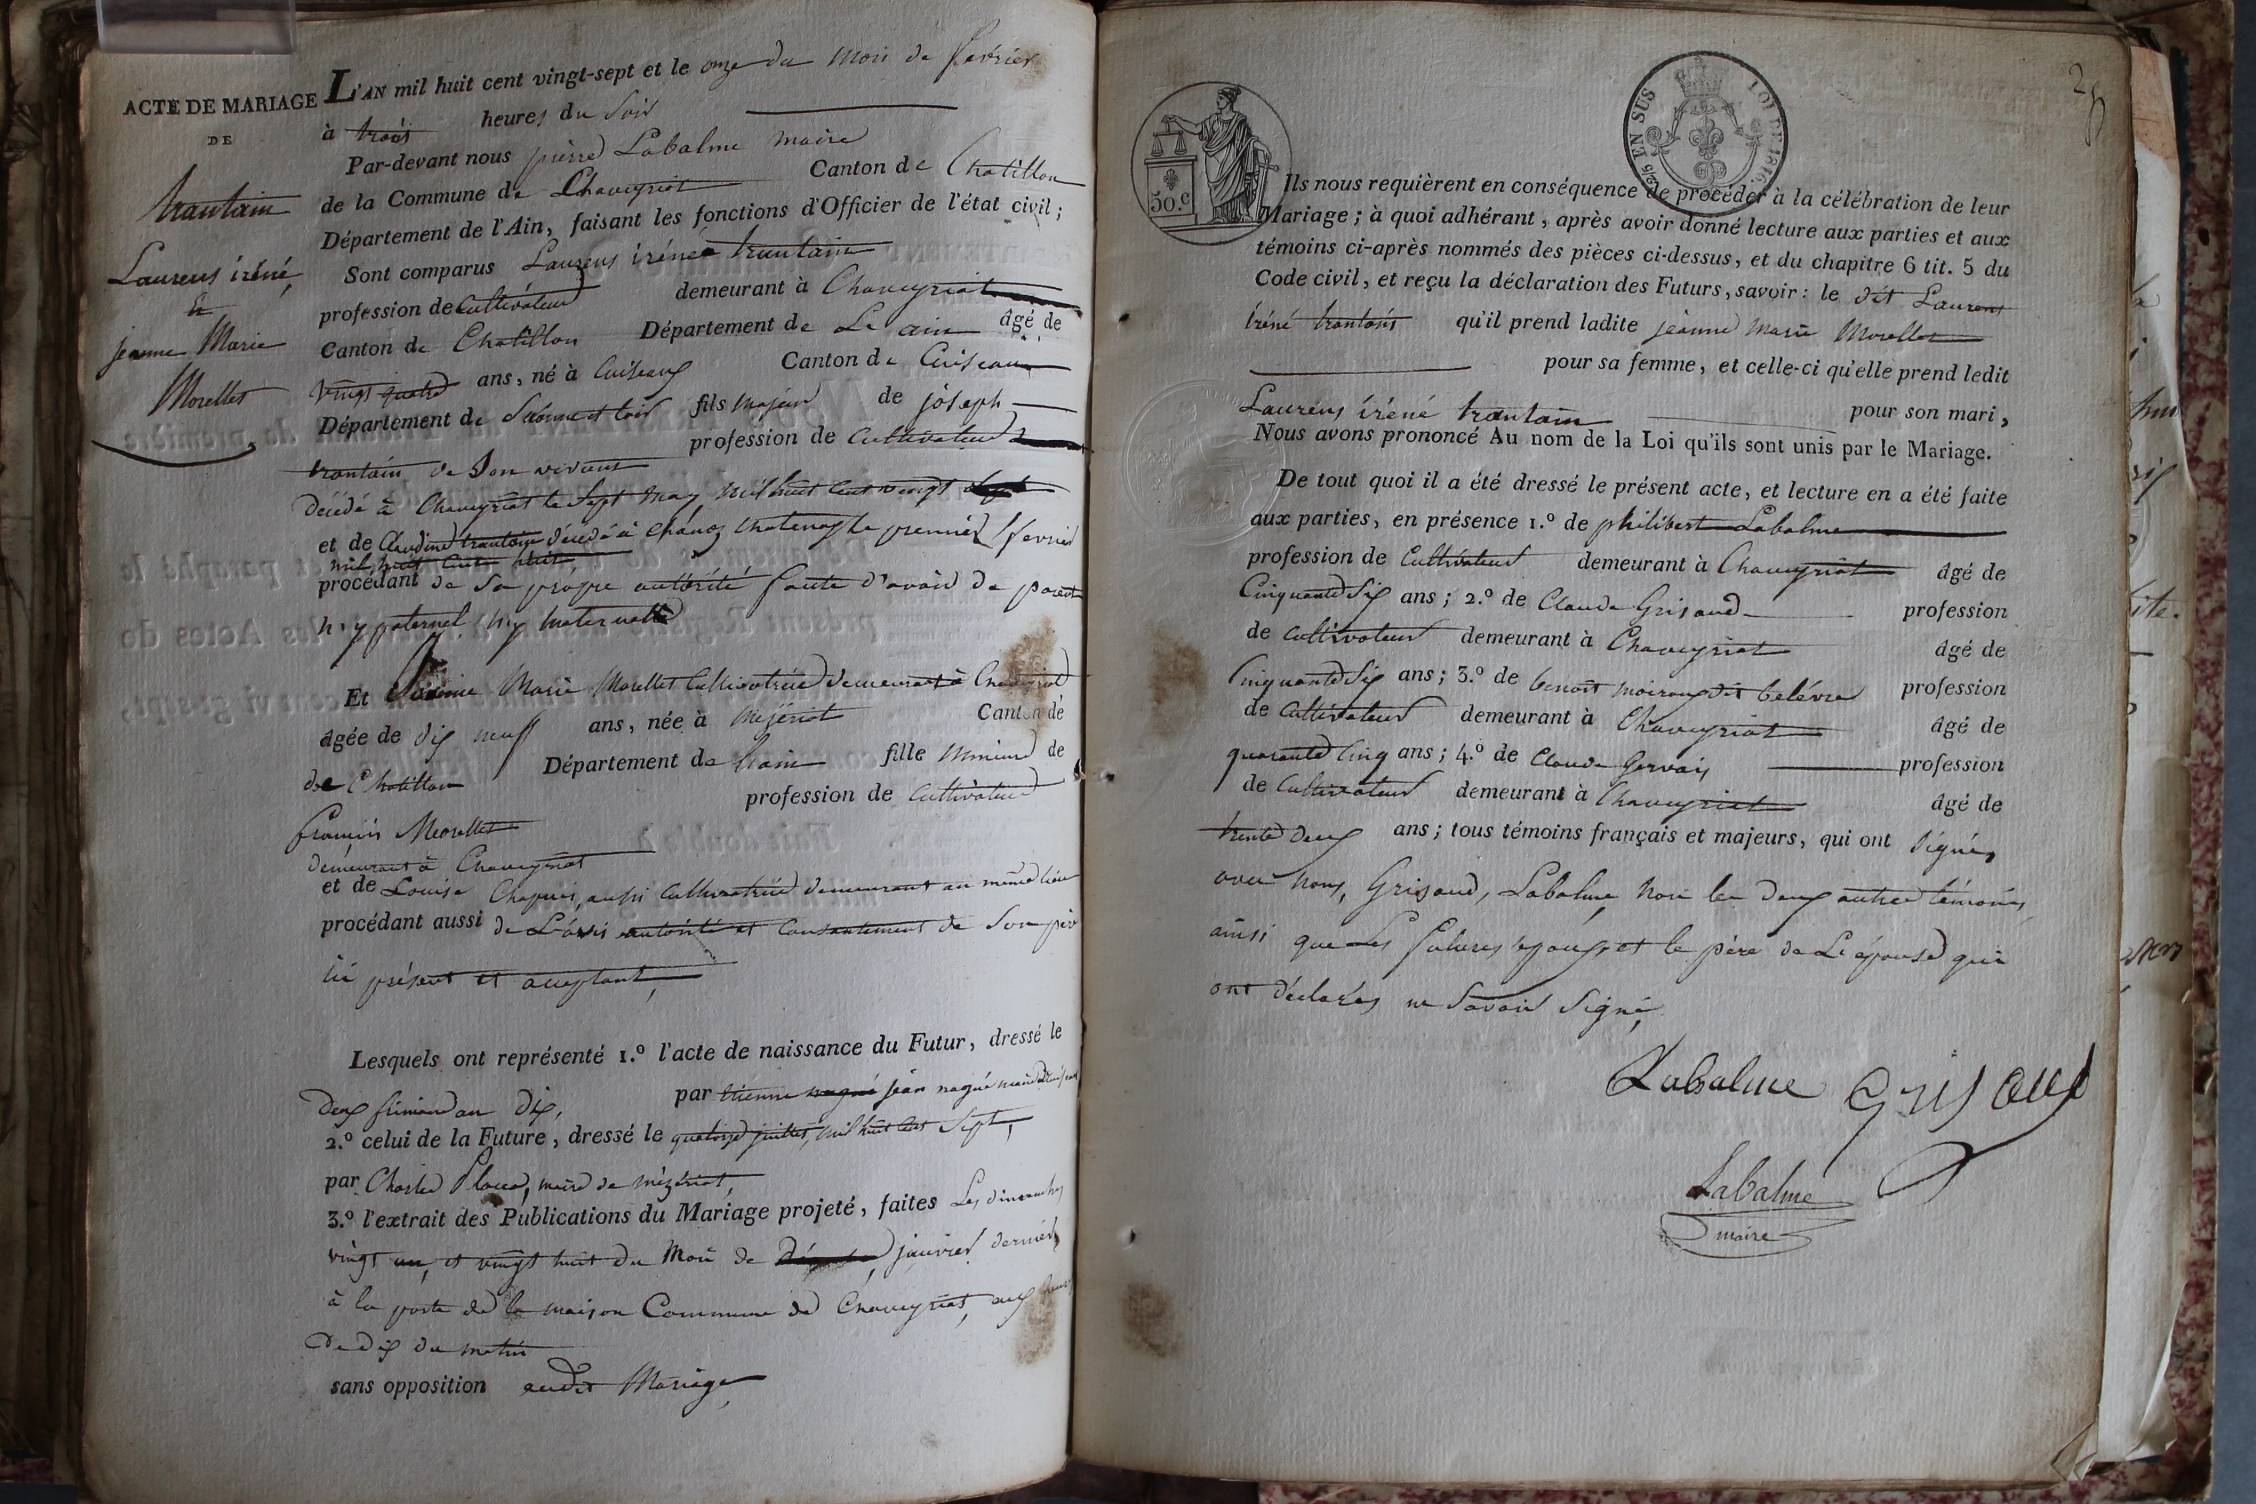 ACTE DE MARIAGE
DE
trantain
Laurens iréné
Et
jeanne Marie
Morellet
L'AN mil huit cent vingt-sept et le onze du mois de février
à trois heures du soir
Par-devant nous pierre Labalme maire
de la Commune de Chaveyriat Canton de Chatillon
Département de l'Ain, faisant les fonctions d'Officier de l'état civil ;
Sont comparus Laurens iréné trantain
profession de Cultivateur demeurant à Chaveyriat
Canton de Chatillon Département de L'ain âgé de
vingt quatre ans, né à Cuiseaux Canton de Cuiseaux
Département de Saonne et loire fils majeur de joseph
trantain de Son vivant profession de Cultivateur
décédé à Chaveyriat le Sept may mil huit cent vingt
et de Claudine trantain décédé à Chanoz Chatenay le premier février
mil huit cent huit
procédant de Sa propre autorité faute d'avoir de parent
n'y paternel n'y maternelle
Et jeanne Marie Morellet Cultivatrice demeurant à Chaveyriat
âgée de dix neuf ans, née à Mézériat Canton de
de Chatillon Département de Lain fille mineure de
françois Morellet profession de Cultivateur
demeurant à Chaveyriat
et de Louise Chapuis, aussi Cultivatrice demeurant au même lieu
procédant aussi de L'avis autorité et Consentement de Son père
ici présent et acceptant,
Lesquels ont représenté 1.º l'acte de naissance du Futur, dressé le
deux frimaire an dix, par étienne nagué jean nagué maire
2.º celui de la Future, dressé le quatorze juillet, mil huit cent Sept,
par Charles maire de mézériat,
3.º l'extrait des Publications du Mariage projeté, faites Les dimanches
vingt un, et vingt huit du Mois de janvier dernier,
à la porte de la maison Commune de Chaveyriat, aux heures
De dix du matin
sans opposition audit Mariage,
50.c
2/5 EN SUS LOI DE 1816.
Ils nous requièrent en conséquence de procéder à la célébration de leur
Mariage ; à quoi adhérant, après avoir donné lecture aux parties et aux
témoins ci-après nommés des pièces ci-dessus, et du chapitre 6 tit. 5 du
Code civil, et reçu la déclaration des Futurs, savoir : le dit Laurens
iréné trantain qu'il prend ladite jeanne Marie Morellet
pour sa femme, et celle-ci qu'elle prend ledit
Laurens iréné trantain pour son mari,
Nous avons prononcé Au nom de la Loi qu'ils sont unis par le Mariage.
De tout quoi il a été dressé le présent acte, et lecture en a été faite
aux parties, en présence 1.º de philibert Labalme
profession de Cultivateur demeurant à Chaveyriat âgé de
Cinquante Six ans ; 2.º de Claude Grisaud profession
de Cultivateur demeurant à Chaveyriat âgé de
Cinquante Six ans ; 3.º de benoit moiroux dit belévre profession
de Cultivateur demeurant à Chaveyriat âgé de
quarante Cinq ans ; 4.º de Claude Gervais profession
de Cultivateur demeurant à Chaveyriat âgé de
trente deux ans ; tous témoins français et majeurs, qui ont Signés
avec nous, Grisaud, Labalme, non les deux autres témoins,
ainsi que Les futures époux, et le père de L'épouse qui
ont déclarés ne Savoir Signé,
Labalme Grisaud
Labalme
maire